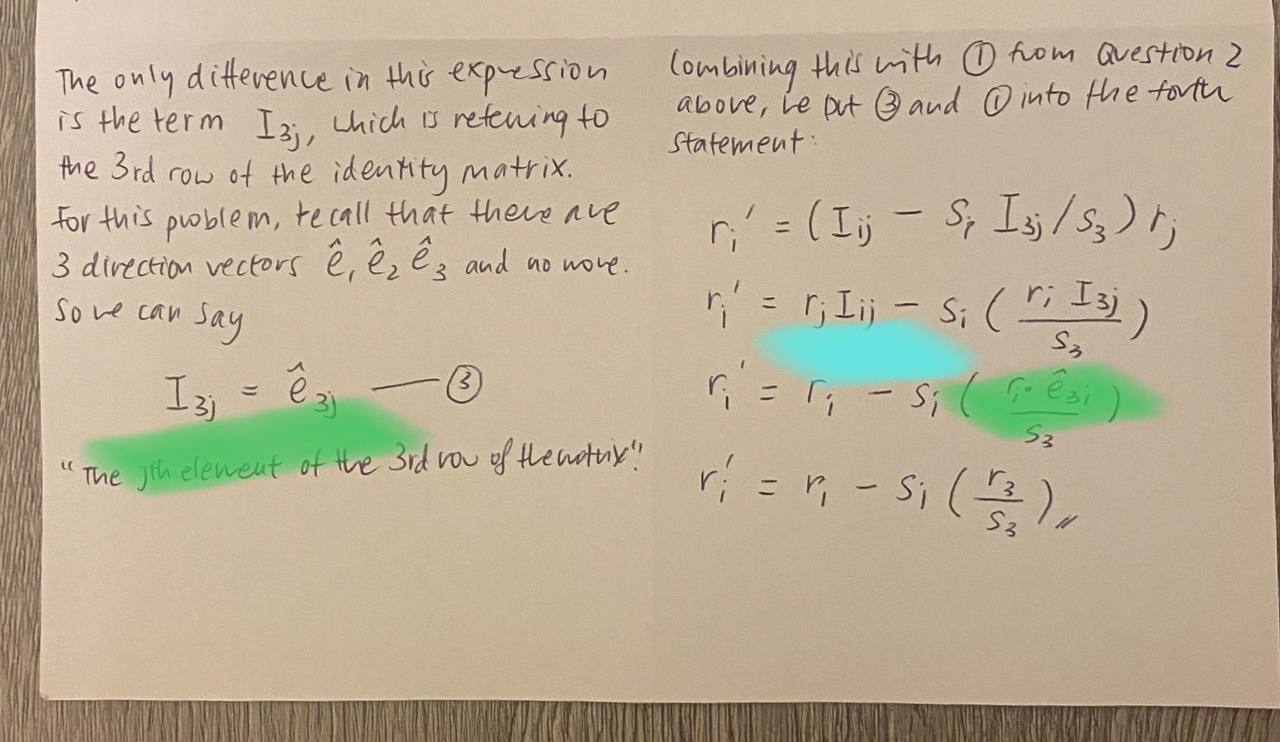 The only difference in this expression
is the term I₃ⱼ, which is refering to
the 3rd row of the identity matrix.
For this problem, recall that there are
3 direction vectors ê₁ ê₂ ê₃ and no more.
So we can say
I₃ⱼ = ê₃ⱼ — ③
"The jth element of the 3rd row of the matrix".
Combining this with ① from Question 2
above, we put ③ and ① into the forth
statement:
rᵢ' = (Iᵢⱼ − Sᵢ I₃ⱼ/S₃) rⱼ
rᵢ' = rⱼIᵢⱼ − Sᵢ (rⱼ I₃ⱼ / S₃)
rᵢ' = rᵢ − Sᵢ (rⱼ · ê₃ⱼ / S₃)
rᵢ' = rᵢ − Sᵢ (r₃ / S₃)